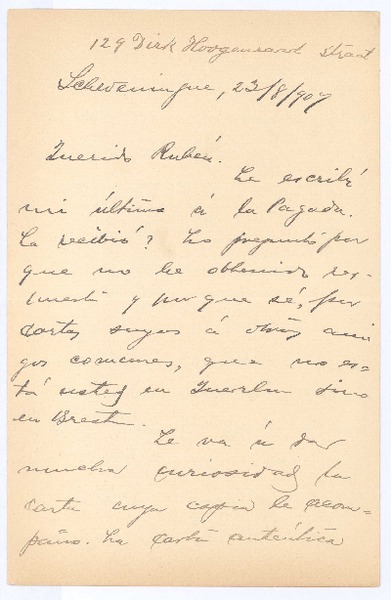 129 Dirk Hoogenraad Straat
Scheveningue, 23/8/907
Querido Rubén.
Le escribí
mi última á la Pagada.
La recibió? Lo pregunto por
que no he obtenido res-
puesta y porque sé, por
cartas suyas á otros ami
gos comunes, que no es-
tá usted en sino
en Brest.
Le va á dar
mucha curiosidad la
carta cuya copia le acom-
paño. La carta auténtica